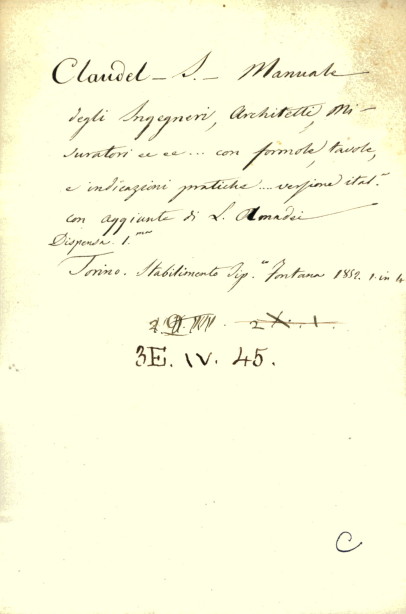 Claudel – S. – Manuale
degli Ingegneri, Architetti, Mi-
suratori ec ec... con formole, tavole,
e indicazioni pratiche .... versione ital.ª
con aggiunte di L. Amadei
Dispensa. 1.ma
Torino. Stabilimento Tip.co Fontana 1852. 1. in 4
2 X. 1.
3E. IV. 45.
C